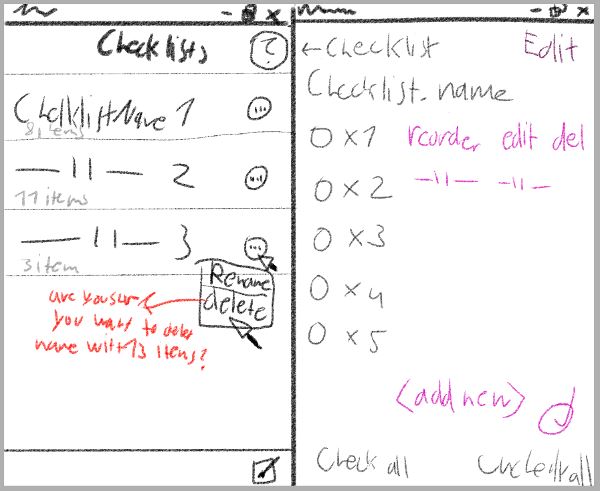 Checklists ?
Checklist Name 1
8 items
— 11 — 2
11 items
— 11 — 3
3 item
Rename
delete
are you sur
you want to delete
name with 13 items?
← Checklist Edit
Checklist name
O x1 reorder edit del
O x2 —11— —11—
O x3
O x4
O x5
<add new>
Check all Uncheck all